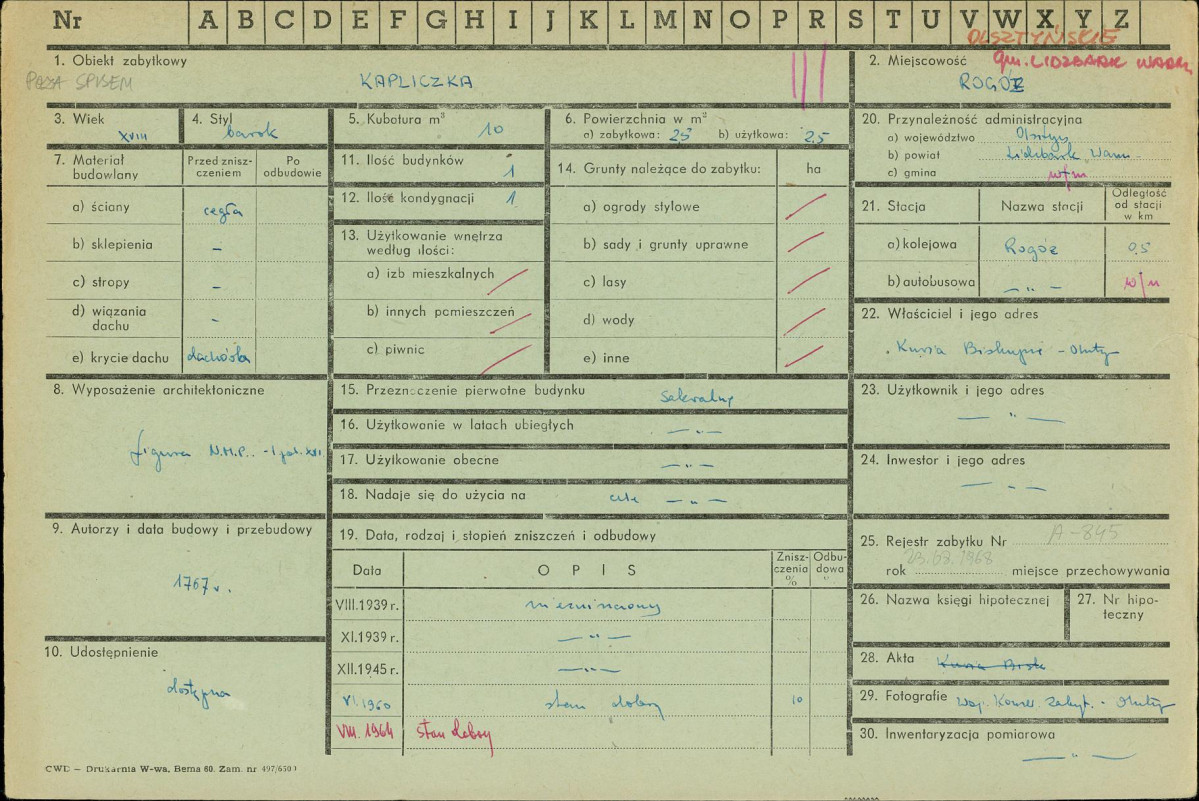 Nr A B C D E F G H I J K L M N O P R S T U V W X Y Z
OLSZTYŃSKIE
1. Obiekt zabytkowy
POZA SPISEM
KAPLICZKA
2. Miejscowość gm. LIDZBARK WARM.
ROGÓŻ
3. Wiek
XVIII
4. Styl
barok
5. Kubatura m³
10
6. Powierzchnia w m²
a) zabytkowa: 25 b) użytkowa: 25
7. Materiał budowlany
Przed zniszczeniem
Po odbudowie
a) ściany cegła
b) sklepienia –
c) stropy –
d) wiązania dachu –
e) krycie dachu dachówka
8. Wyposażenie architektoniczne
figura N.M.P. - I poł. XVII
9. Autorzy i data budowy i przebudowy
1767 r.
10. Udostępnienie
dostępna
11. Ilość budynków 1
12. Ilość kondygnacji 1
13. Użytkowanie wnętrza według ilości:
a) izb mieszkalnych
b) innych pomieszczeń
c) piwnic
14. Grunty należące do zabytku: ha
a) ogrody stylowe
b) sady i grunty uprawne
c) lasy
d) wody
e) inne
15. Przeznaczenie pierwotne budynku sakralny
16. Użytkowanie w latach ubiegłych — „ —
17. Użytkowanie obecne — „ —
18. Nadaje się do użycia na cele — „ —
19. Data, rodzaj i stopień zniszczeń i odbudowy
Data OPIS Zniszczenia % Odbudowa %
VIII.1939 r. niezniszczony
XI.1939 r. — „ —
XII.1945 r. — „ —
VI.1960 stan dobry 10
VIII. 1964 stan dobry
20. Przynależność administracyjna
a) województwo Olsztyn
b) powiat Lidzbark Warm.
c) gmina w/m
21. Stacja Nazwa stacji Odległość od stacji w km
a) kolejowa Rogóż 0,5
b) autobusowa — „ — w/m
22. Właściciel i jego adres
Kuria Biskupia - Olsztyn
23. Użytkownik i jego adres
— „ —
24. Inwestor i jego adres
— „ —
25. Rejestr zabytku Nr A-845
rok 23.02.1968 miejsce przechowywania
26. Nazwa księgi hipotecznej
27. Nr hipoteczny
28. Akta Kuria Bisk
29. Fotografie Woj. Konser. Zabyt. - Olsztyn
30. Inwentaryzacja pomiarowa
— „ —
CWD — Drukarnia W-wa, Bema 60. Zam. nr 497/650